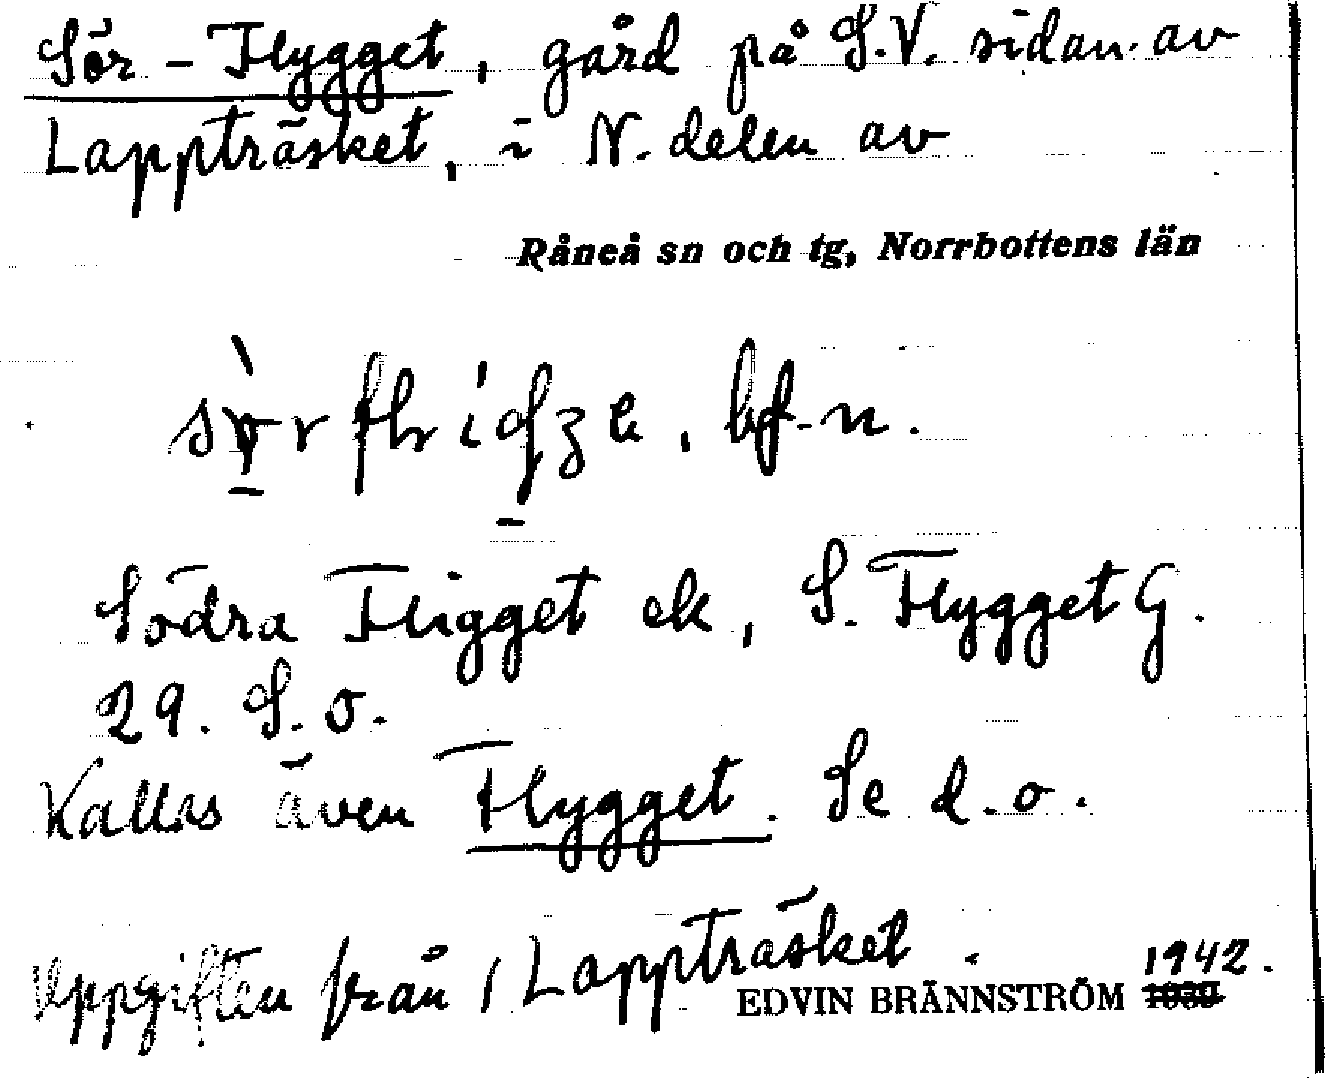 Sör-Flygget, gård på S.V. sidan av
Lappträsket, i N. delen av
Råneå sn och tg, Norrbottens län
bf. n.
Södra Fligget ek, S. Flygget G.
29. S. o.
Kallas även Flygget. Se d. o.
Uppgiften från Lappträsket.
1942.
EDVIN BRÄNNSTRÖM 1939